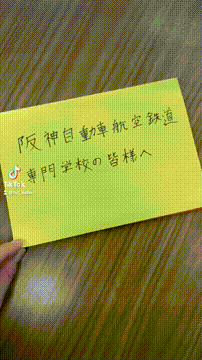 阪神自動車航空鉄道
専門学校の皆様へ
TikTok